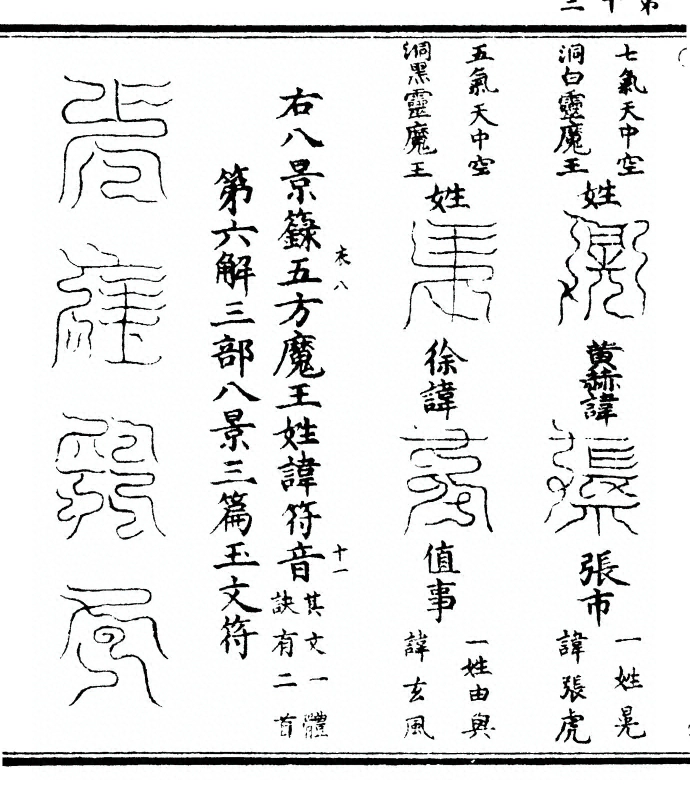 第十二
七氣天中空
洞白靈魔王
姓
黃赫諱
張市
一姓晃
諱張虎
五氣天中空
洞黑靈魔王
姓
徐諱
值事
一姓由與
諱玄風
右八景籙五方魔王姓諱符音
其文一體
訣有二首
第六解三部八景三篇玉文符